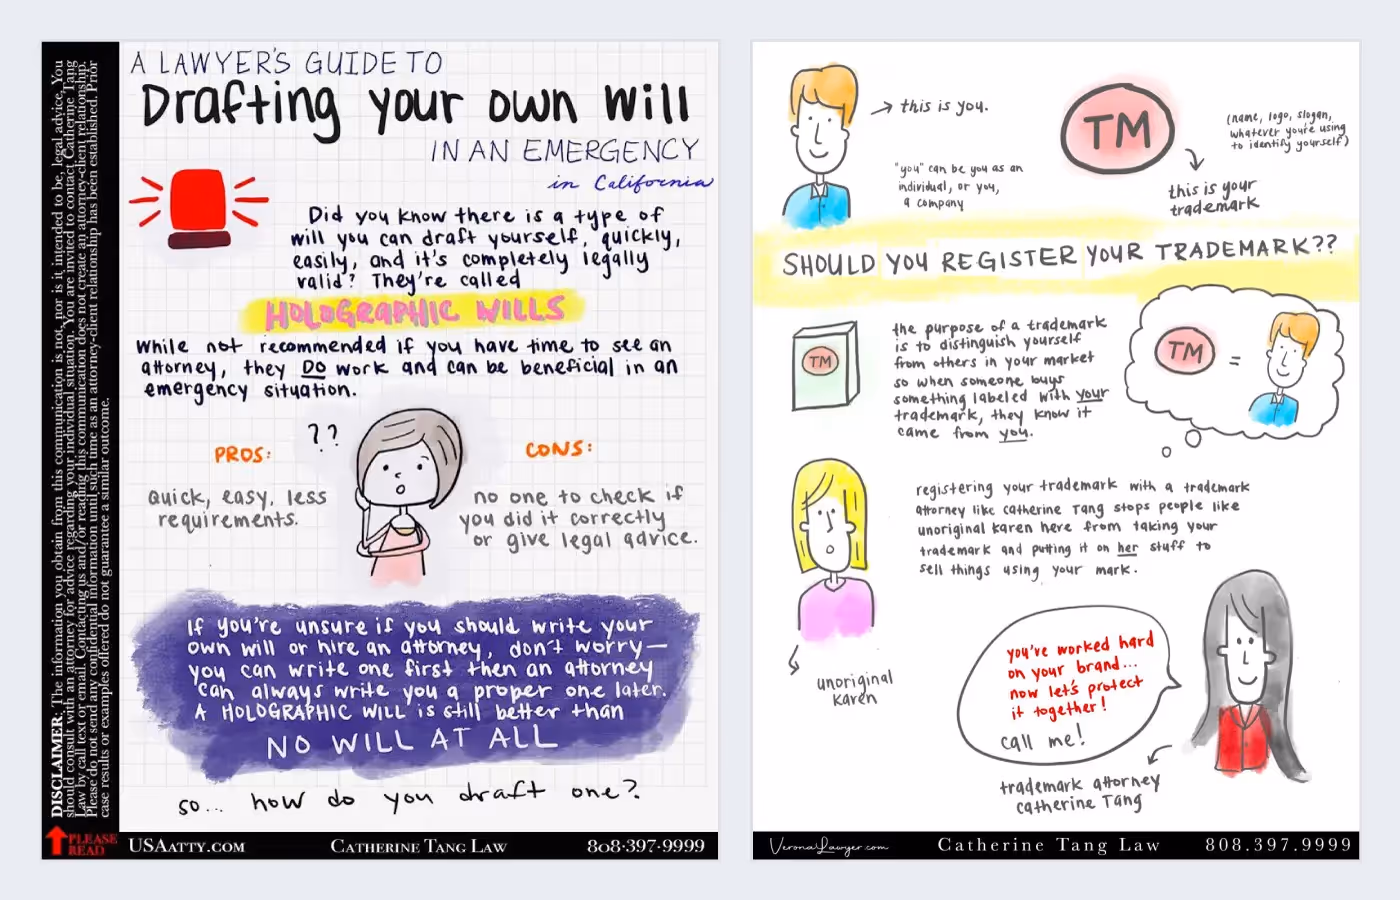 A LAWYER'S GUIDE TO
Drafting your own will
IN AN EMERGENCY
in California
Did you know there is a type of
will you can draft yourself, quickly,
easily, and it's completely legally
valid? They're called
HOLOGRAPHIC WILLS
While not recommended if you have time to see an
attorney, they DO work and can be beneficial in an
emergency situation.
??
PROS:
Quick, easy, less
requirements.
CONS:
no one to check if
you did it correctly
or give legal advice.
If you're unsure if you should write your
own will or hire an attorney, don't worry—
you can write one first then an attorney
can always write you a proper one later.
A HOLOGRAPHIC WILL is still better than
NO WILL AT ALL
so... how do you draft one?
DISCLAIMER: The information you obtain from this communication is not, nor is it intended to be, legal advice. You
should consult with an attorney for advice regarding your individual situation. You are invited to contact Catherine Tang
Law by call text or email. Contacting us and/or reading this communication does not create an attorney-client relationship.
Please do not send any confidential information until such time as an attorney-client relationship has been established. Prior
case results or examples offered do not guarantee a similar outcome.
PLEASE
READ
USAatty.com
Catherine Tang Law
808·397·9999
this is you.
"you" can be you as an
individual, or you,
a company
TM
(name, logo, slogan,
whatever you're using
to identify yourself)
this is your
trademark
SHOULD YOU REGISTER YOUR TRADEMARK??
TM
the purpose of a trademark
is to distinguish yourself
from others in your market
so when someone buys
something labeled with your
trademark, they know it
came from you.
TM =
registering your trademark with a trademark
attorney like Catherine Tang stops people like
unoriginal Karen here from taking your
trademark and putting it on her stuff to
sell things using your mark.
unoriginal
Karen
you've worked hard
on your brand...
now let's protect
it together!
call me!
trademark attorney
Catherine Tang
VeronaLawyer.com
Catherine Tang Law
808.397.9999